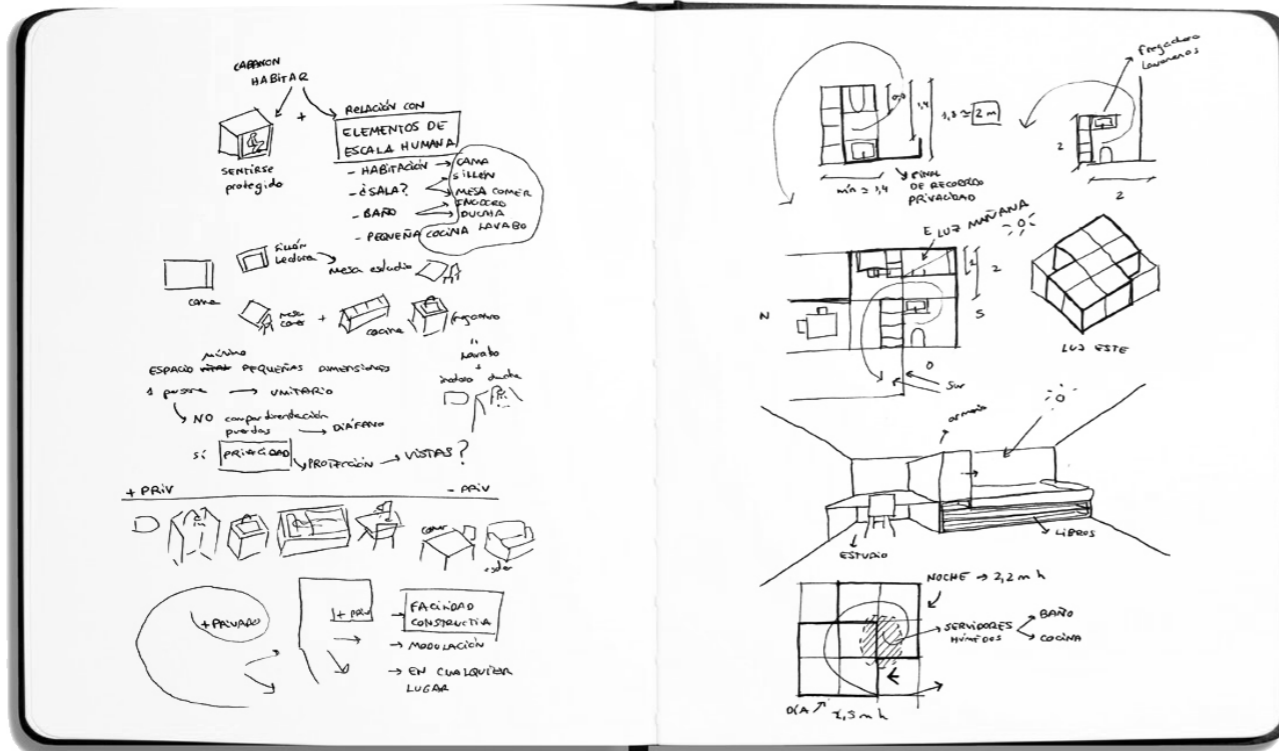 CABANON
HABITAR
+
SENTIRSE
protegido
RELACIÓN CON
ELEMENTOS DE
ESCALA HUMANA
- HABITACIÓN → CAMA
SILLÓN
- ¿SALA? MESA COMER
INODORO
- BAÑO DUCHA
- PEQUEÑA COCINA LAVABO
cama
sillón
lectura
mesa estudio
mesa
comer
+
cocina
fregadero
"
lavabo
+
inodoro ducha
mínimo
ESPACIO PEQUEÑAS DIMENSIONES
1 persona → UNITARIO
NO compartimentación
puertas → DIÁFANO
SÍ PRIVACIDAD PROTECCIÓN → VISTAS?
+ PRIV - PRIV
comer
estar
+ PRIVADO
+ priv
→ FACILIDAD
CONSTRUCTIVA
→ MODULACIÓN
→ EN CUALQUIER
LUGAR
1,4
1,8 ≈ 2 m
mín ≈ 1,4
FINAL
DE RECORRIDO
PRIVACIDAD
fregadero
2
2
E LUZ MAÑANA
1
2
N
S
O
Sur
LUZ ESTE
armario
ESTUDIO
LIBROS
NOCHE → 2,2 m h
SERVIDORES
HÚMEDOS
BAÑO
COCINA
DÍA